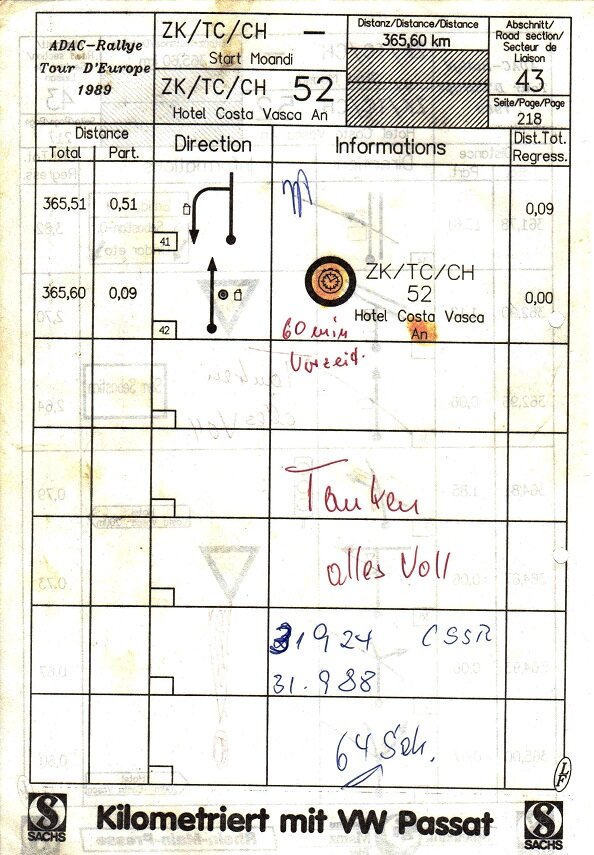 ADAC-Rallye
Tour D'Europe
1989
ZK/TC/CH –
Start Moandi
ZK/TC/CH 52
Hotel Costa Vasca An
Distanz/Distance/Distance
365,60 km
Abschnitt/
Road section/
Secteur de
Liaison
43
Seite/Page/Page
218
Distance
Total Part.
Direction
Informations
Dist.Tot.
Regress.
365,51 0,51
41
0,09
365,60 0,09
42
ZK/TC/CH
52
Hotel Costa Vasca
An
0,00
60 min
Vorzeit.
Tanken
alles Voll
31924 CSSR
31.988
64 Sek.
LF
SACHS
Kilometriert mit VW Passat
SACHS